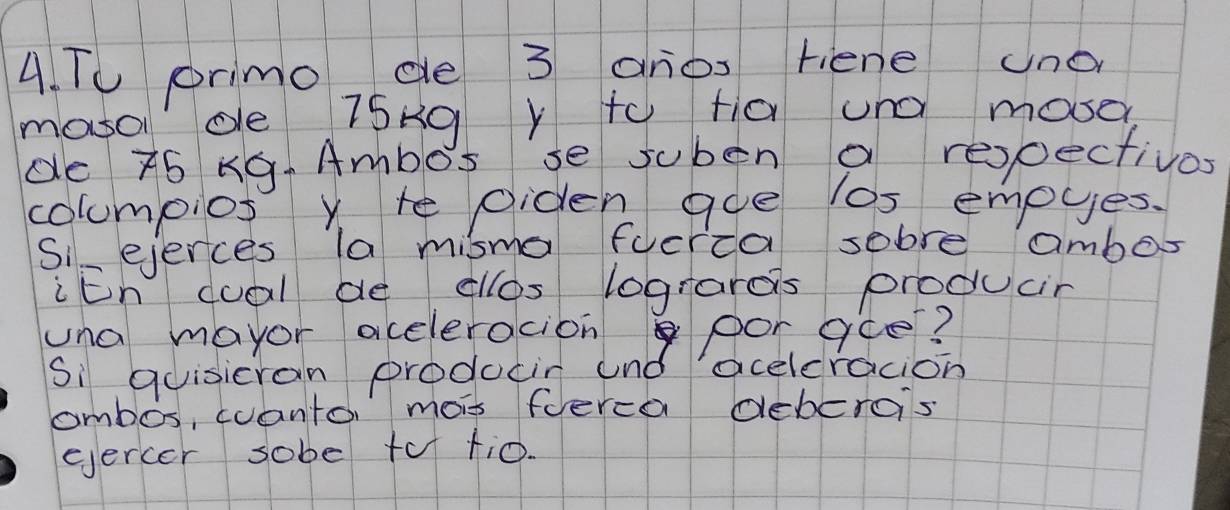 4. Tu primo de 3 años tiene una
masa de 15Kg y tu tia una masa
de 75 Kg. Ambos se suben a respectivos
columpios y te piden que los empujes.
Si ejerces la misma fuerza sobre ambos
¿En cual de ellos lograras producir
una mayor aceleracion por que?
Si quisieran producir und aceleracion
ambos, cuanta mas fuerza deberas
ejercer sobe tu tio.